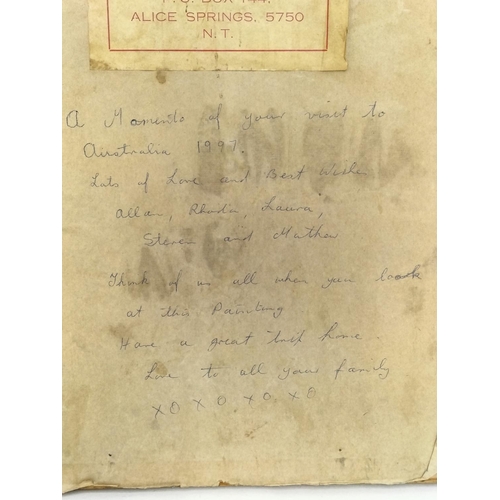 P.O. BOX 144.
ALICE SPRINGS. 5750
N.T.
A Momento of your visit to
Australia 1997.
Lots of Love and Best Wishes
Allan, Rhoda, Laura,
Steven and Mathew
Think of us all when you look
at this Painting
Have a great trip home.
Love to all your family
XO XO XO XO